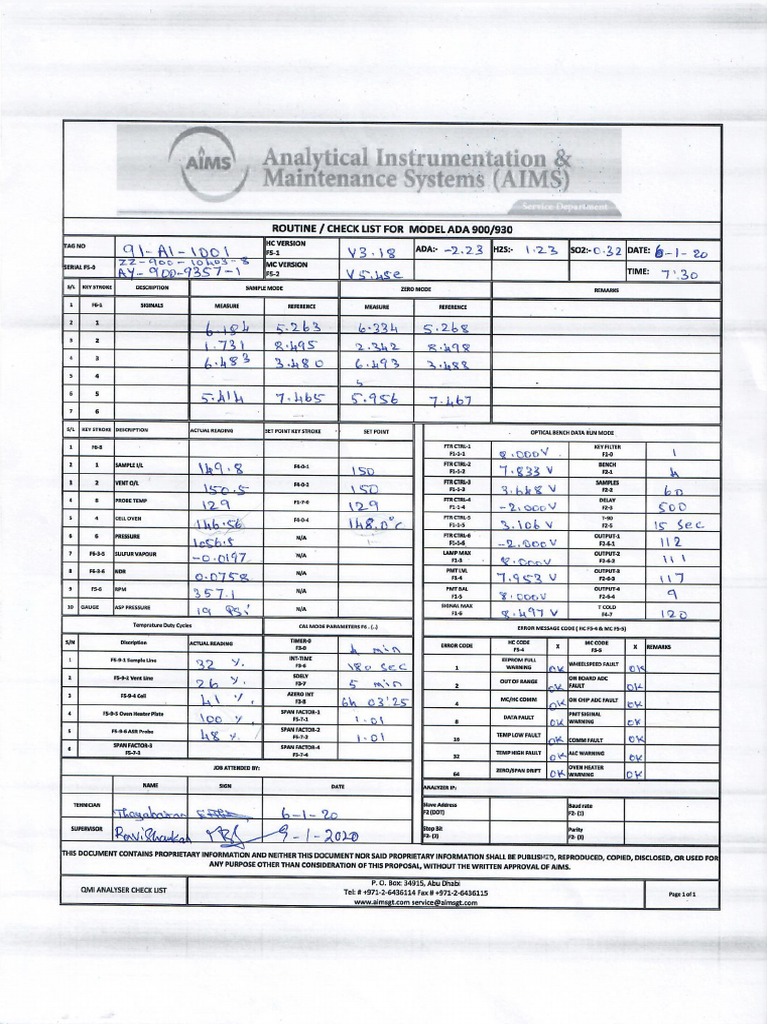 AIMS
Analytical Instrumentation &
Maintenance Systems (AIMS)
Service Department
ROUTINE / CHECK LIST FOR MODEL ADA 900/930
TAG NO 91-A1-1001 HC VERSION F5-1 V3.18 ADA:- -2.23 H2S:- 1.23 SO2:- 0.32 DATE: 6-1-20
SERIAL F5-0 ZZ-900-10403-8 AY-900-9357-1 MC VERSION F5-2 TIME: 7:30
S/L KEY STROKE DESCRIPTION SAMPLE MODE ZERO MODE REMARKS
1 F6-1 SIGINALS MEASURE REFERENCE MEASURE REFERENCE
2 1 6.184 5.263 6.334 5.268
3 2 1.731 8.495 2.342 8.498
4 3 6.483 3.480 6.493 3.488
5 4
6 5 5.414 7.465 5.956 7.467
7 6
S/L KEY STROKE DESCRIPTION ACTUAL READING SET POINT KEY STROKE SET POINT OPTICAL BENCH DATA RUN MODE
1 F6-8 FTR CTRL-1 F1-1-1 8.000V KEY FILTER F2-0 1
2 1 SAMPLE I/L 149.8 F6-0-1 150 FTR CTRL-2 F1-1-2 7.833V BENCH F2-1 4
3 2 VENT O/L 150.5 F6-0-2 150 FTR CTRL-3 F1-1-3 3.648V SAMPLES F2-2 60
4 8 PROBE TEMP 129 F1-7-0 129 FTR CTRL-4 F1-1-4 -2.000V DELAY F2-3 500
5 4 CELL OVEN 146.56 F5-0-4 148.0°C FTR CTRL-5 F1-1-5 3.106V T-90 F2-5 15 Sec
6 6 PRESSURE 1056.5 N/A FTR CTRL-6 F1-1-6 -2.000V OUTPUT-1 F2-6-1 112
7 F6-3-5 SULFUR VAPOUR -0.0197 N/A LAMP MAX F1-3 8.000V OUTPUT-2 F2-6-2 111
8 F6-3-6 NDR 0.0758 N/A PMT LVL F5-4 7.953V OUTPUT-3 F2-6-3 117
9 F5-6 RPM 357.1 N/A PMT BAL F1-5 8.000V OUTPUT-4 F2-6-4 9
10 GAUGE ASP PRESSURE 19 PSi N/A SIGNAL MAX F1-6 8.497V T COLD F4-7 120
Temprature Duty Cycles CAL MODE PARAMETERS F6 . (..) ERROR MESSAGE CODE ( HC F5-4 & MC F5-5)
S/N Discription ACTUAL READING TIMER-D F3-0 4 min ERROR CODE HC CODE F5-4 X MC CODE F5-5 X REMARKS
1 F5-9-1 Sample Line 32 % INT-TIME F3-6 180 SEC 1 EEPROM FULL WARNING OK WHEELSPEED FAULT OK
2 F5-9-2 Vent Line 26 % SDELY F3-7 5 min 2 OUT OF RANGE OK ON BOARD ADC FAULT OK
3 F5-9-4 Cell 41 % AZERO INT F3-8 6h 03'25 4 MC/HC COMM OK ON CHIP ADC FAULT OK
4 F5-9-5 Oven Heater Plate 100 % SPAN FACTOR-1 F5-7-1 1.01 8 DATA FAULT OK PMT SIGINAL WARNING OK
5 F5-9-6 ASR Probe 48 % SPAN FACTOR-2 F3-7-2 1.01 16 TEMP LOW FAULT OK COMM FAULT OK
6 SPAN FACTOR-3 F5-7-3 SPAN FACTOR-4 F3-7-4 32 TEMP HIGH FAULT OK ALC WARNING OK
64 ZERO/SPAN DRIFT OK OVEN HEATER WARNING OK
JOB ATTENDED BY: ANALYZER IP:
NAME SIGN DATE
TEHNICIAN 6-1-20 Slave Address F2 (DOT) Baud rate F2- (1)
SUPERVISOR Ravi Shankar 9-1-2020 Stop Bit F2- (2) Parity F2- (3)
THIS DOCUMENT CONTAINS PROPRIETARY INFORMATION AND NEITHER THIS DOCUMENT NOR SAID PROPRIETARY INFORMATION SHALL BE PUBLISHED, REPRODUCED, COPIED, DISCLOSED, OR USED FOR
ANY PURPOSE OTHER THAN CONSIDERATION OF THIS PROPOSAL, WITHOUT THE WRITTEN APPROVAL OF AIMS.
QMI ANALYSER CHECK LIST
P. O. Box: 34915, Abu Dhabi
Tel: # +971-2-6436114 Fax # +971-2-6436115
www.aimsgt.com service@aimsgt.com
Page 1 of 1